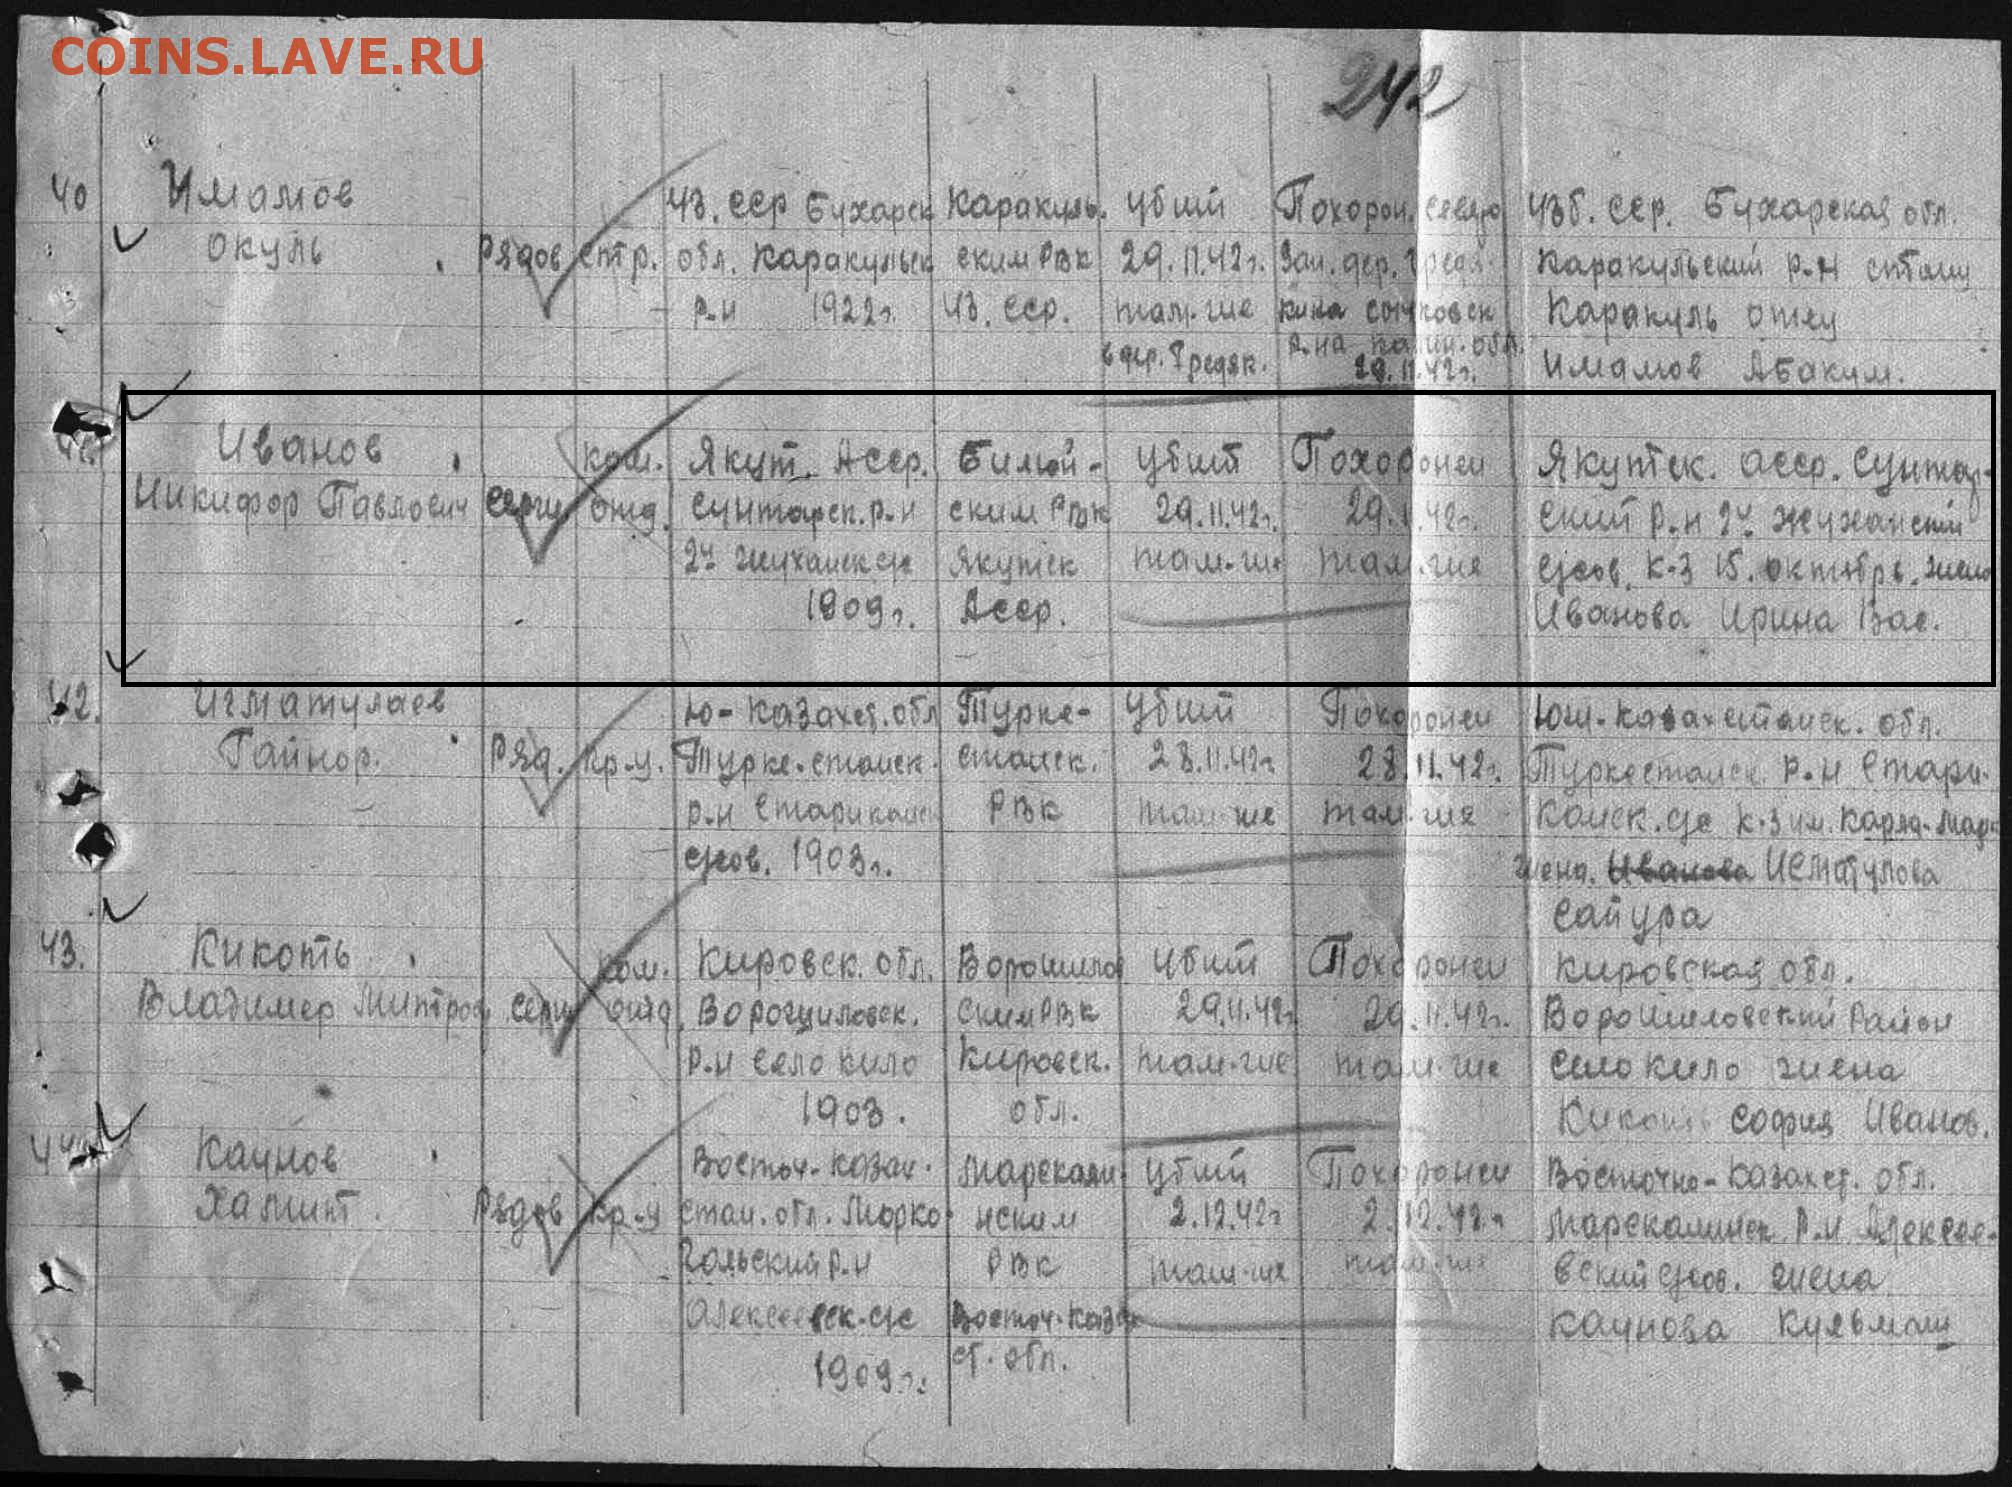 COINS.LAVE.RU
242
40
Имамов
окуль
Рядов
стр.
Уз. ССР Бухарск
обл. Каракульск
р-н 1922г.
Каракуль.
ским РВК
Уз. ССР.
Убит
29.11.42г.
там-же
в дер. Гредяк.
Похорон.
Зап. дер.
р-на Калин. обл.
29.11.42г.
Узб. ССР. Бухарская обл.
Каракульский р-н
Каракуль отец
Имамов Абакум.
41.
Иванов
Никифор Павлович
Серж.
ком.
отд.
Якут. АССР.
Сунтарск. р-н
2й Жуханск с/с
1909г.
Билюй-
ским РВК
Якутск
АССР.
Убит
29.11.42г.
там-же
Похоронен
29.11.42г.
там-же
Якутск. АССР. Сунтар-
ский р-н 2й Жуханский
с/сов. к-з 15. октябрь. жена
Иванова Ирина Вас.
42.
Игматулаев
Гайнор.
Ряд.
кр-ц.
Ю-Казахст. обл
Турке-станск.
р-н Стариканск
с/сов. 1903г.
Турке-
станск.
РВК
Убит
28.11.42г.
там-же
Похоронен
28.11.42г.
там-же
Юж-Казахстанск. обл.
Туркестанск. р-н Стари-
канск. с/с к-з им. Карла-Марк
жена. Иванова Исматулова
Сайура
43.
Кикоть
Владимер Митроф
Серж
ком.
отд.
Кировск. обл.
Ворошиловск.
р-н село Кило
1903.
Ворошилов
ским РВК
Кировск.
обл.
Убит
29.11.42г.
там-же
Похоронен
29.11.42г.
там-же
Кировская обл.
Ворошиловский район
село Кило жена
Кикоть София Иванов.
44.
Каунов
Хамит.
Рядов
кр-ц
Восточ-Казах.
стан. обл. Марко
Гольский р-н
Алексеевск-с/с
1909г.
Марскали-
нским
РВК
Восточ-Каза
ст. обл.
Убит
2.12.42г
там-же
Похоронен
2.12.42г
там-же
Восточно-Казахст. обл.
Марскалинск р-н Алексее-
вский с/сов. жена
Каунова